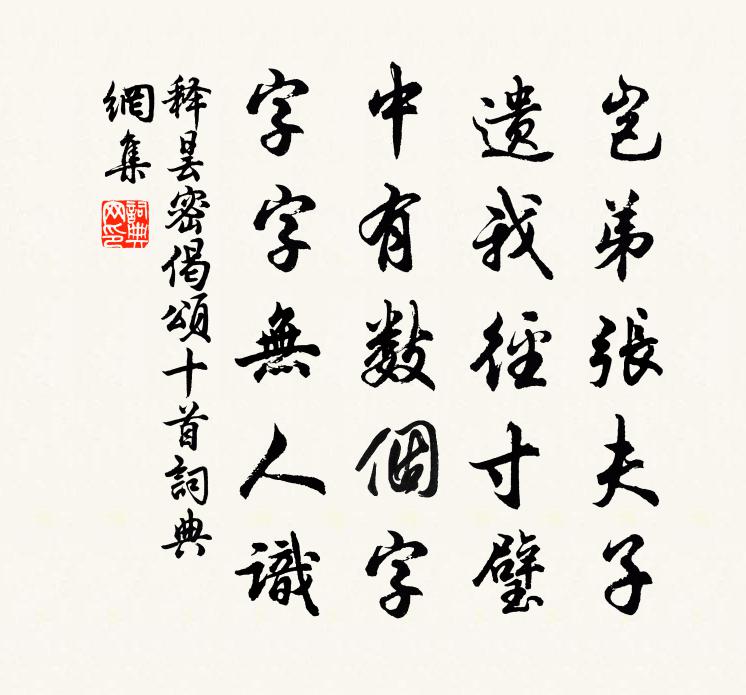 豈弟張夫子
遺我徑寸璧
中有數個字
字字無人識
释曇密偈頌十首詞典
網集
詞典
网印